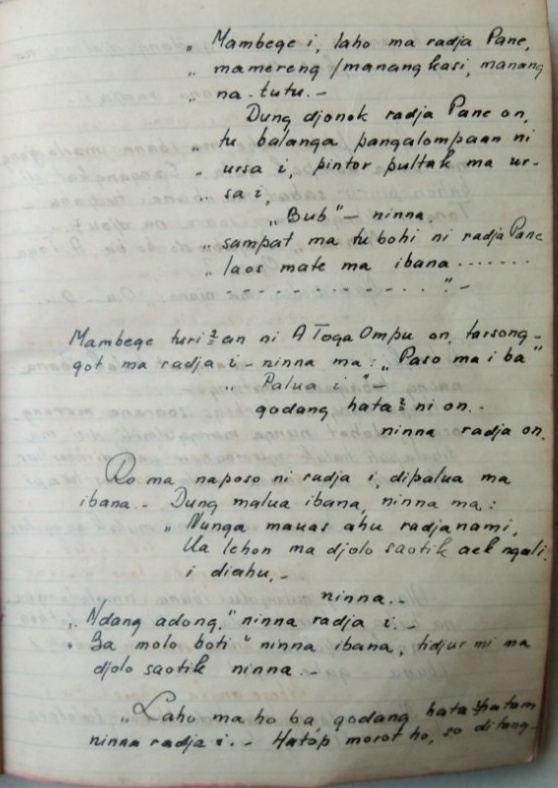 „ Mambege i, laho ma radja Pane,
„ mamereng /manangkasi, manang
„ na-tutu.-
Dung djonok radja Pane on,
„ tu balanga pangalompaan ni
„ ursa i, pintor pultak ma ur-
„ sa i,
„Bub"- ninna,
„ sampat ma tu bohi ni radja Pane
„ laos mate ma ibana .......
- - - - - - - - - - - - - "-
Mambege turi2an ni A Toga Ompu on, tarsong-
got ma radja i- ninna ma: „Paso ma i ba"
„ Palua i"-
godang hata2 ni on.-
ninna radja on.
Ro ma naposo ni radja i, dipalua ma
ibana.- Dung malua ibana, ninna ma:
„Nunga mauas ahu radjanami,
Ua lehon ma djolo saotik aek ngali-
i diahu,-
ninna.-
„Ndang adong," ninna radja i.-
„Ba molo boti" ninna ibana, tidjur mi ma
djolo saotik ninna.-
„Laho ma ho ba, godang hata2
ninna radja i.- Hatop morot ho, so ditang-